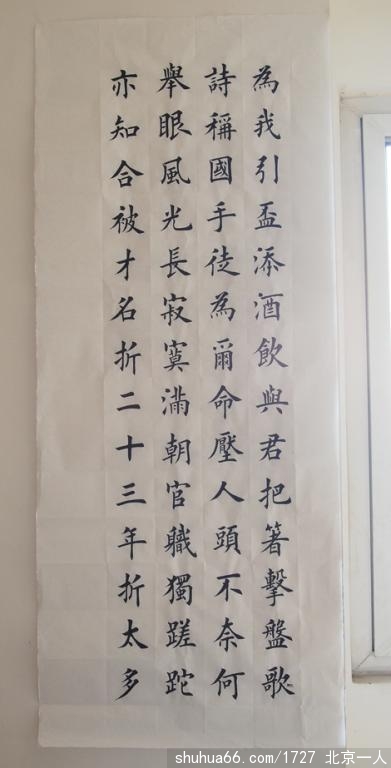 為我引盃添酒飲與君把箸擊盤歌
詩稱國手徒為爾命壓人頭不奈何
舉眼風光長寂寞滿朝官職獨蹉跎
亦知合被才名折二十三年折太多
shuhua66.com/1727 北京一人